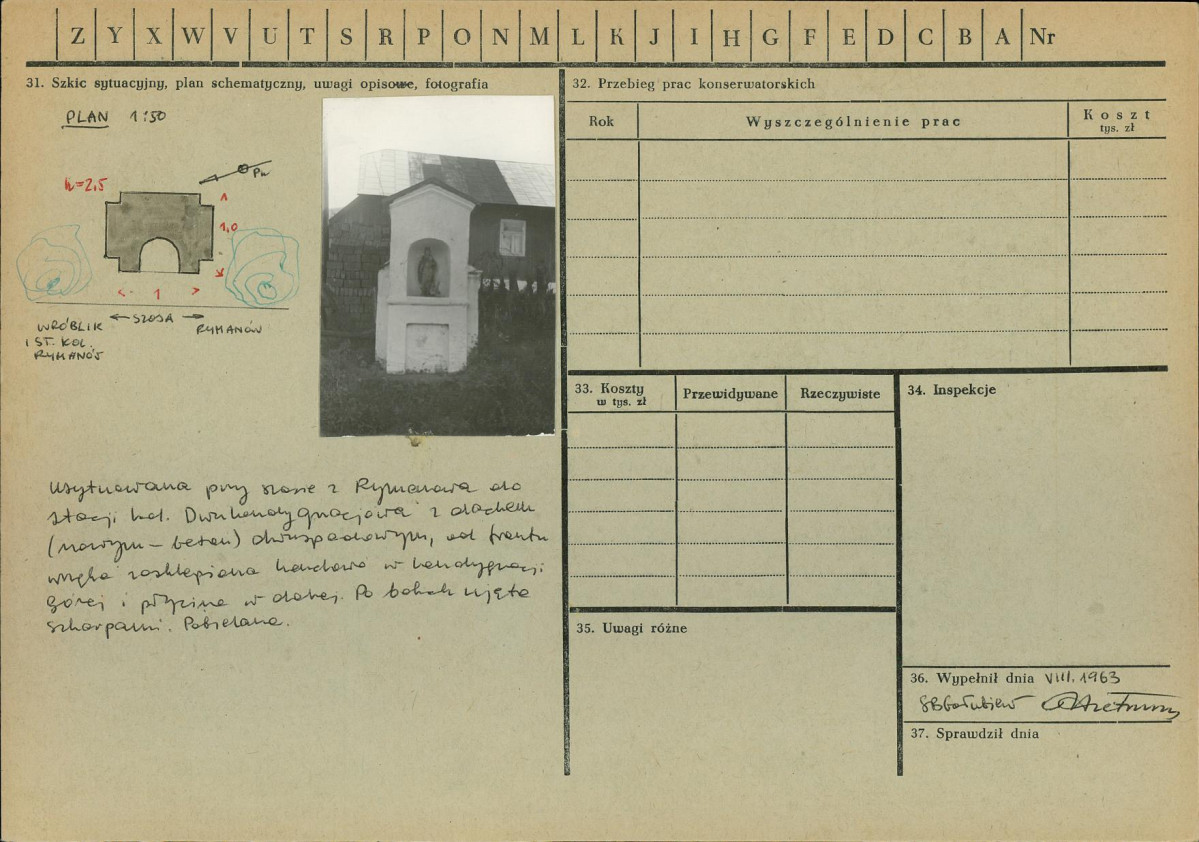 Z Y X W V U T S R P O N M L K J I H G F E D C B A Nr
31. Szkic sytuacyjny, plan schematyczny, uwagi opisowe, fotografia
PLAN 1:50
Pn
h=2,5
1,0
1
SZOSA
WRÓBLIK
I ST. KOL.
RYMANÓW
RYMANÓW
Usytuowana przy szosie z Rymanowa do
stacji kol. Dwukondygnacjowa z dachem
(nowym - beton) dwuspadowym, od frontu
wnęka zasklepiona konchowo w kondygnacji
górnej i płycina w dolnej. Po bokach ujęta
szkarpami. Pobielana.
32. Przebieg prac konserwatorskich
Rok
Wyszczególnienie prac
Koszt
tys. zł
33. Koszty
w tys. zł
Przewidywane
Rzeczywiste
34. Inspekcje
35. Uwagi różne
36. Wypełnił dnia VIII. 1963
37. Sprawdził dnia